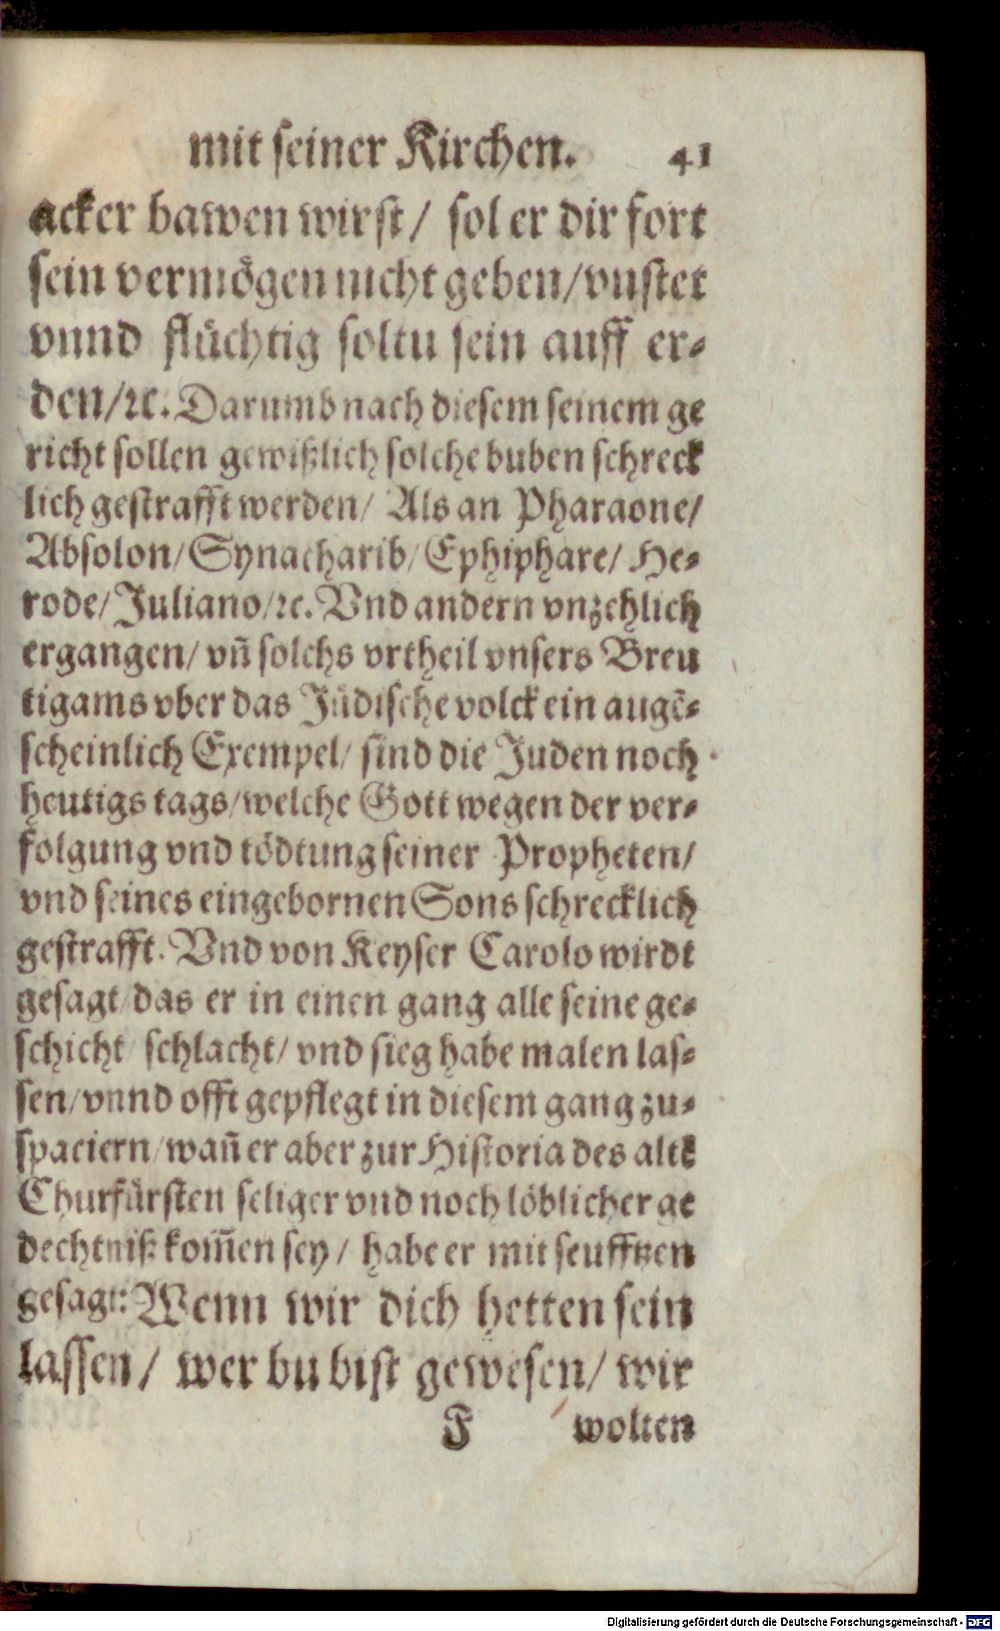 mit seiner Kirchen. 41
acker bawen wirst / sol er dir fort
sein vermögen nicht geben/vnstet
vnnd flüchtig soltu sein auff er-
den/ꝛc. Darumb nach diesem seinem ge
richt sollen gewißlich solche buben schreck
lich gestrafft werden/ Als an Pharaone/
Absolon/Synacharib/Ephiphare/ He-
rode/Juliano/ꝛc. Vnd andern vnzehlich
ergangen/ vñ solchs vrtheil vnsers Breu
tigams vber das Jüdische volck ein augē-
scheinlich Exempel/ sind die Juden noch
heutigs tags/welche Gott wegen der ver-
folgung vnd tödtung seiner Propheten/
vnd seines eingebornen Sons schrecklich
gestrafft. Vnd von Keyser Carolo wirdt
gesagt/das er in einen gang alle seine ge-
schicht/ schlacht/ vnd sieg habe malen las-
sen/vnnd offt gepflegt in diesem gang zu-
spaciern/wañ er aber zur Historia des altē
Churfürsten seliger vnd noch löblicher ge
dechtniß kom̃en sey / habe er mit seufftzen
gesagt: Wenn wir dich hetten sein
lassen / wer bu bist gewesen/ wir
F wolten
Digitalisierung gefördert durch die Deutsche Forschungsgemeinschaft - DFG